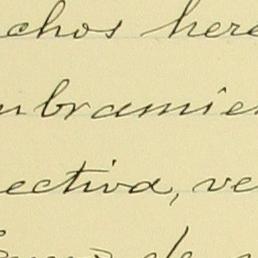 chos here
mbramien
ectiva, ve
de